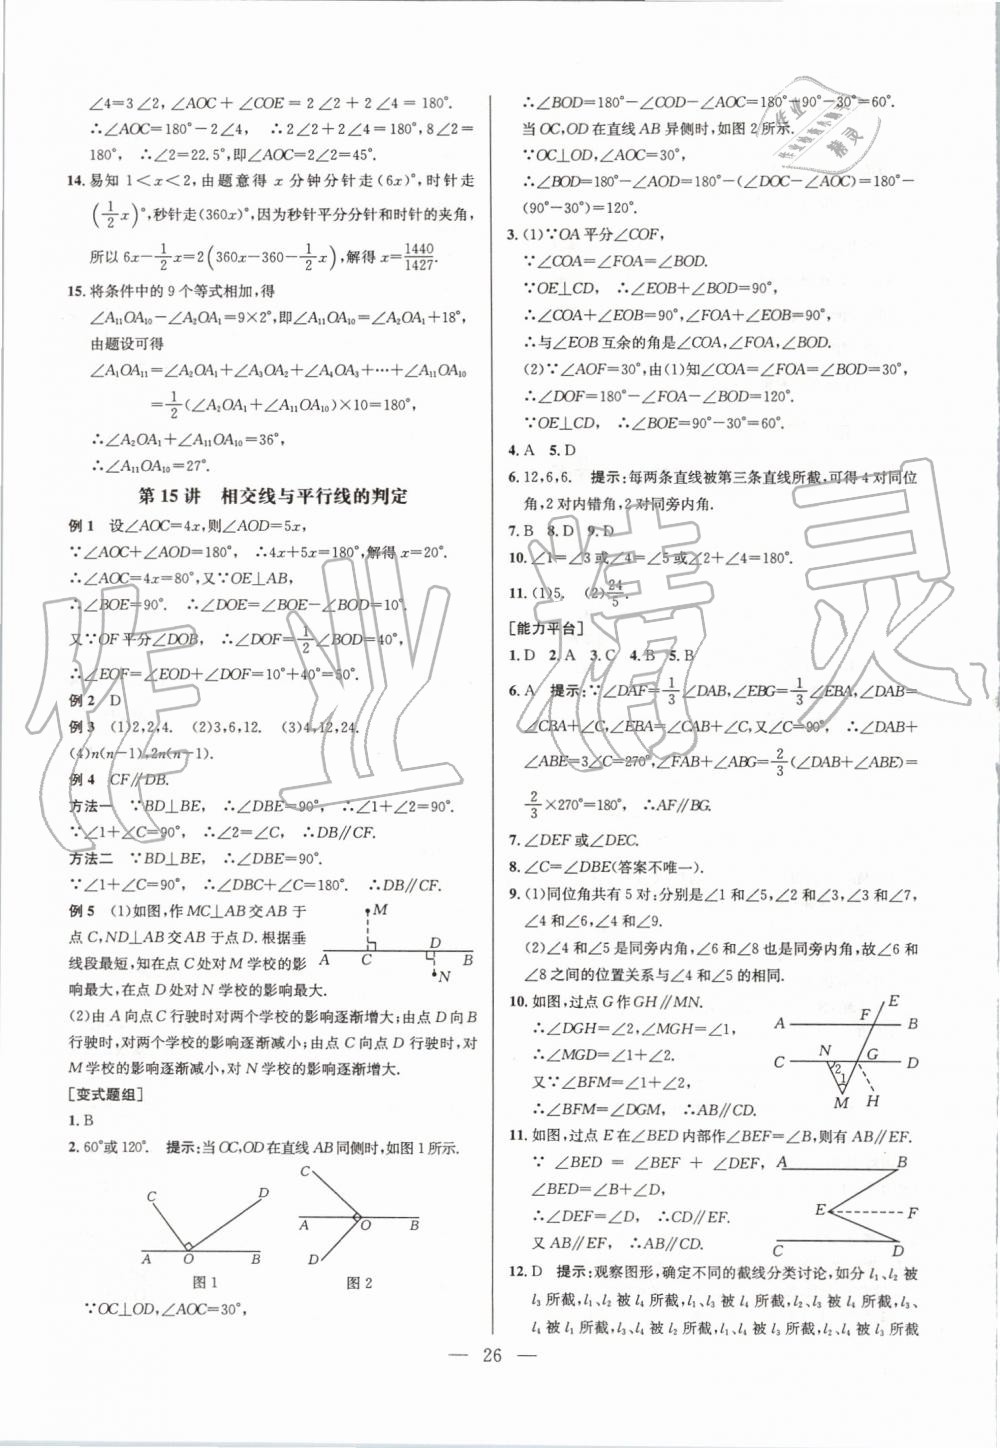 ∠4=3∠2,∠AOC+∠COE=2∠2+2∠4=180°.
∴∠AOC=180°-2∠4, ∴2∠2+2∠4=180°,8∠2=
180°, ∴∠2=22.5°,即∠AOC=2∠2=45°.
14. 易知 1<x<2,由题意得 x 分钟分针走(6x)°,时针走
(1/2 x)°,秒针走(360x)°,因为秒针平分分针和时针的夹角,
所以 6x-1/2 x=2(360x-360-1/2 x),解得 x=1440/1427.
15. 将条件中的 9 个等式相加,得
∠A₁₁OA₁₀-∠A₂OA₁=9×2°,即∠A₁₁OA₁₀=∠A₂OA₁+18°,
由题设可得
∠A₁OA₁₁=∠A₂OA₁+∠A₃OA₂+∠A₄OA₃+…+∠A₁₁OA₁₀
=1/2(∠A₂OA₁+∠A₁₁OA₁₀)×10=180°,
∴∠A₂OA₁+∠A₁₁OA₁₀=36°,
∴∠A₁₁OA₁₀=27°.
第 15 讲 相交线与平行线的判定
例 1 设∠AOC=4x,则∠AOD=5x,
∵∠AOC+∠AOD=180°, ∴4x+5x=180°,解得 x=20°.
∴∠AOC=4x=80°,又∵OE⊥AB,
∴∠BOE=90°. ∴∠DOE=∠BOE-∠BOD=10°.
又∵OF 平分∠DOB, ∴∠DOF=1/2∠BOD=40°,
∴∠EOF=∠EOD+∠DOF=10°+40°=50°.
例 2 D
例 3 (1)2,2,4. (2)3,6,12. (3)4,12,24.
(4)n(n-1),2n(n-1).
例 4 CF∥DB.
方法一 ∵BD⊥BE, ∴∠DBE=90°, ∴∠1+∠2=90°.
∵∠1+∠C=90°, ∴∠2=∠C, ∴DB∥CF.
方法二 ∵BD⊥BE, ∴∠DBE=90°.
∵∠1+∠C=90°, ∴∠DBC+∠C=180°. ∴DB∥CF.
例 5 (1)如图,作 MC⊥AB 交 AB 于
点 C,ND⊥AB 交 AB 于点 D.根据垂
线段最短,知在点 C 处对 M 学校的影
响最大,在点 D 处对 N 学校的影响最大.
M
D
A C B
N
(2)由 A 向点 C 行驶时对两个学校的影响逐渐增大;由点 D 向 B
行驶时,对两个学校的影响逐渐减小;由点 C 向点 D 行驶时,对
M 学校的影响逐渐减小,对 N 学校的影响逐渐增大.
[变式题组]
1. B
2. 60°或 120°. 提示:当 OC,OD 在直线 AB 同侧时,如图 1 所示.
C D
A O B
图 1
C
A O B
D
图 2
∵OC⊥OD,∠AOC=30°,
∴∠BOD=180°-∠COD-∠AOC=180°-90°-30°=60°.
当 OC,OD 在直线 AB 异侧时,如图 2 所示.
∵OC⊥OD,∠AOC=30°,
∴∠BOD=180°-∠AOD=180°-(∠DOC-∠AOC)=180°-
(90°-30°)=120°.
3. (1)∵OA 平分∠COF,
∴∠COA=∠FOA=∠BOD.
∵OE⊥CD, ∴∠EOB+∠BOD=90°,
∴∠COA+∠EOB=90°,∠FOA+∠EOB=90°,
∴与∠EOB 互余的角是∠COA,∠FOA,∠BOD.
(2)∵∠AOF=30°,由(1)知∠COA=∠FOA=∠BOD=30°,
∴∠DOF=180°-∠FOA-∠BOD=120°.
∵OE⊥CD, ∴∠BOE=90°-30°=60°.
4. A 5. D
6. 12,6,6. 提示:每两条直线被第三条直线所截,可得 4 对同位
角,2 对内错角,2 对同旁内角.
7. B 8. D 9. D
10. ∠1=∠3 或∠4=∠5 或∠2+∠4=180°.
11. (1)5. (2)24/5.
[能力平台]
1. D 2. A 3. C 4. B 5. B
6. A 提示:∵∠DAF=1/3∠DAB,∠EBG=1/3∠EBA,∠DAB=
∠CBA+∠C,∠EBA=∠CAB+∠C,又∠C=90°, ∴∠DAB+
∠ABE=3∠C=270°,∠FAB+∠ABG=2/3(∠DAB+∠ABE)=
2/3×270°=180°, ∴AF∥BG.
7. ∠DEF 或∠DEC.
8. ∠C=∠DBE(答案不唯一).
9. (1)同位角共有 5 对:分别是∠1 和∠5,∠2 和∠3,∠3 和∠7,
∠4 和∠6,∠4 和∠9.
(2)∠4 和∠5 是同旁内角,∠6 和∠8 也是同旁内角,故∠6 和
∠8 之间的位置关系与∠4 和∠5 的相同.
10. 如图,过点 G 作 GH∥MN.
∴∠DGH=∠2,∠MGH=∠1,
∴∠MGD=∠1+∠2.
又∵∠BFM=∠1+∠2,
∴∠BFM=∠DGM, ∴AB∥CD.
E
A F B
N
C G D
2
1
M H
11. 如图,过点 E 在∠BED 内部作∠BEF=∠B,则有 AB∥EF.
∵ ∠BED = ∠BEF + ∠DEF,
∠BED=∠B+∠D,
∴∠DEF=∠D, ∴CD∥EF.
又 AB∥EF, ∴AB∥CD.
A B
E F
C D
12. D 提示:观察图形,确定不同的截线分类讨论,如分 l₁、l₂ 被
l₃ 所截,l₁、l₂ 被 l₄ 所截,l₁、l₃ 被 l₄ 所截,l₂、l₃ 被 l₄ 所截,l₃、
l₄ 被 l₁ 所截,l₁、l₃ 被 l₂ 所截,l₁、l₄ 被 l₂ 所截,l₂、l₄ 被 l₃ 所截
— 26 —
作业精灵